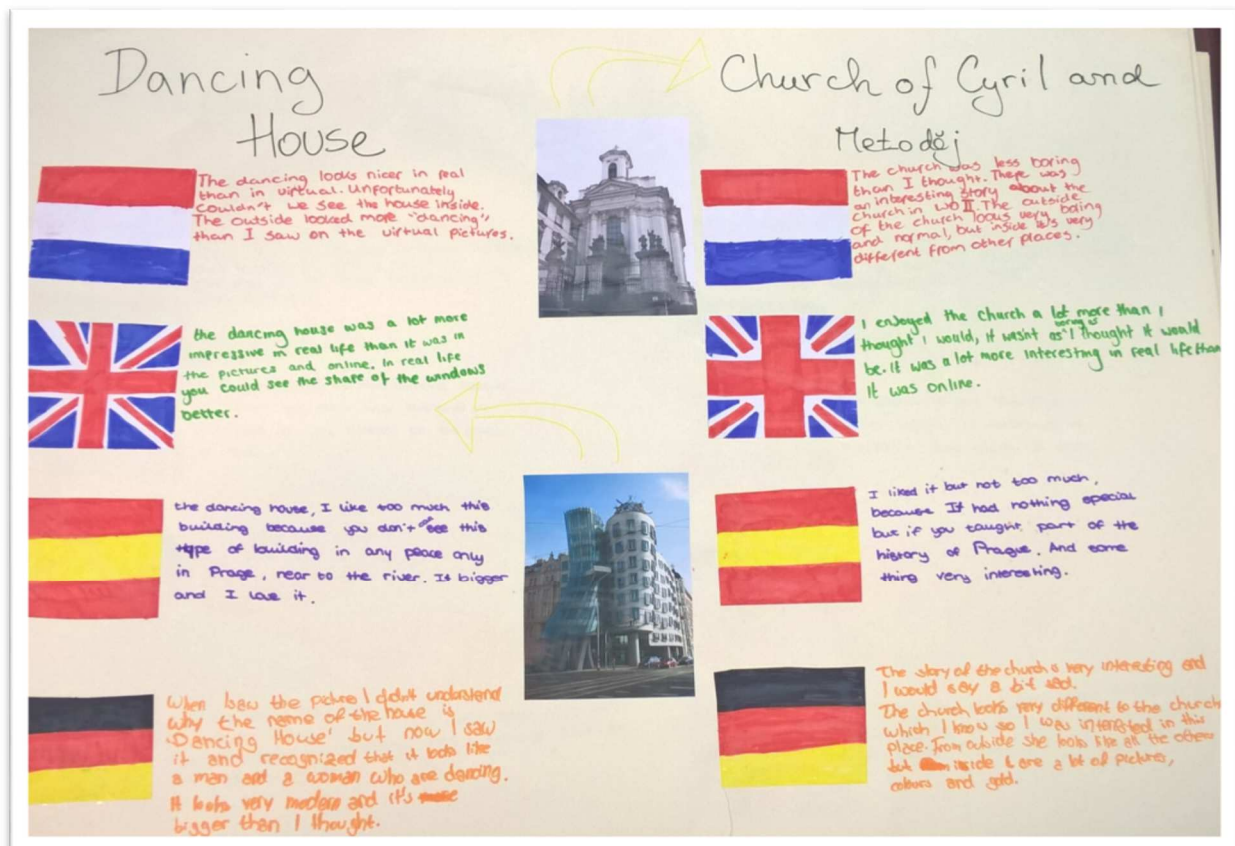 Dancing
House
The dancing looks nicer in real
than in virtual. Unfortunately
couldn't we see the house inside.
The outside looked more "dancing"
than I saw on the virtual pictures.
the dancing house was a lot more
impressive in real life than it was in
the pictures and online. In real life
you could see the share of the windows
better.
the dancing house, I like too much this
building because you don't see this
type of building in any peace only
in Prage, near to the river. It bigger
and I love it.
When I saw the picture I didn't understand
why the name of the house is
'Dancing House' but now I saw
it and recognized that it looks like
a man and a woman who are dancing.
It looks very modern and it's
bigger than I thought.
Church of Cyril and
Metoděj
The church was less boring
than I thought. There was
an interesting story about the
church in WO II. The outside
of the church looks very boing
and normal, but inside it's very
different from other places.
I enjoyed the church a lot more than I
thought I would, it wasn't as boring as I thought it would
be. It was a lot more interesting in real life than
it was online.
I liked it but not too much,
because It had nothing special
but if you taught, part of the
history of Prague. And some
thing very interesting.
The story of the church is very interesting and
I would say a bit sad.
The church looks very different to the church
which I know so I was interested in this
place. From outside she looks like all the other
but inside are a lot of pictures,
colours and gold.